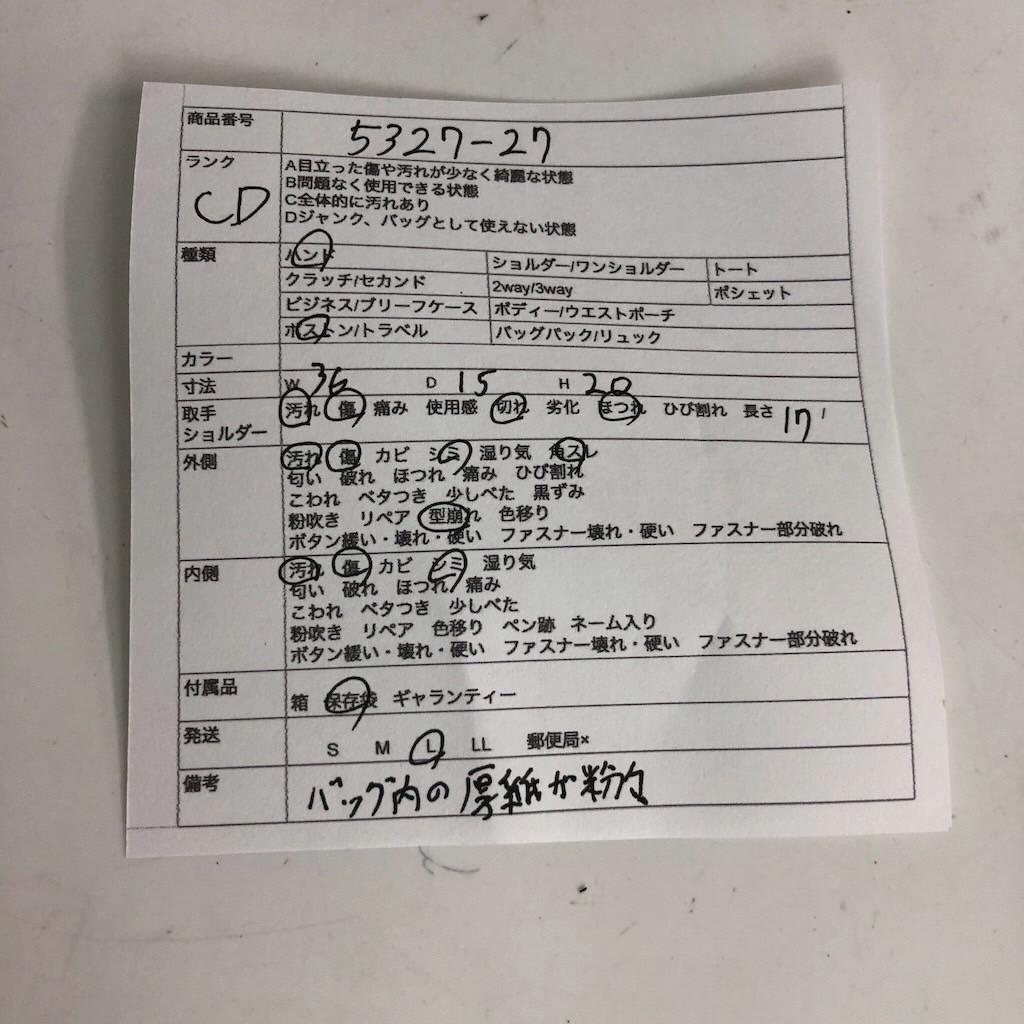 商品番号 5327-27
ランク CD
A目立った傷や汚れが少なく綺麗な状態
B問題なく使用できる状態
C全体的に汚れあり
Dジャンク、バッグとして使えない状態
種類 ハンド ショルダー/ワンショルダー トート
クラッチ/セカンド 2way/3way ポシェット
ビジネス/ブリーフケース ボディー/ウエストポーチ
ボストン/トラベル バッグパック/リュック
カラー
寸法 W 36 D 15 H 20
取手 汚れ 傷 痛み 使用感 切れ 劣化 ほつれ ひび割れ 長さ 17
ショルダー
外側 汚れ 傷 カビ シミ 湿り気 角スレ
匂い 破れ ほつれ 痛み ひび割れ
こわれ ベタつき 少しべた 黒ずみ
粉吹き リペア 型崩れ 色移り
ボタン緩い・壊れ・硬い ファスナー壊れ・硬い ファスナー部分破れ
内側 汚れ 傷 カビ シミ 湿り気
匂い 破れ ほつれ 痛み
こわれ ベタつき 少しべた
粉吹き リペア 色移り ペン跡 ネーム入り
ボタン緩い・壊れ・硬い ファスナー壊れ・硬い ファスナー部分破れ
付属品 箱 保存袋 ギャランティー
発送 S M L LL 郵便局×
備考 バッグ内の厚紙が粉々